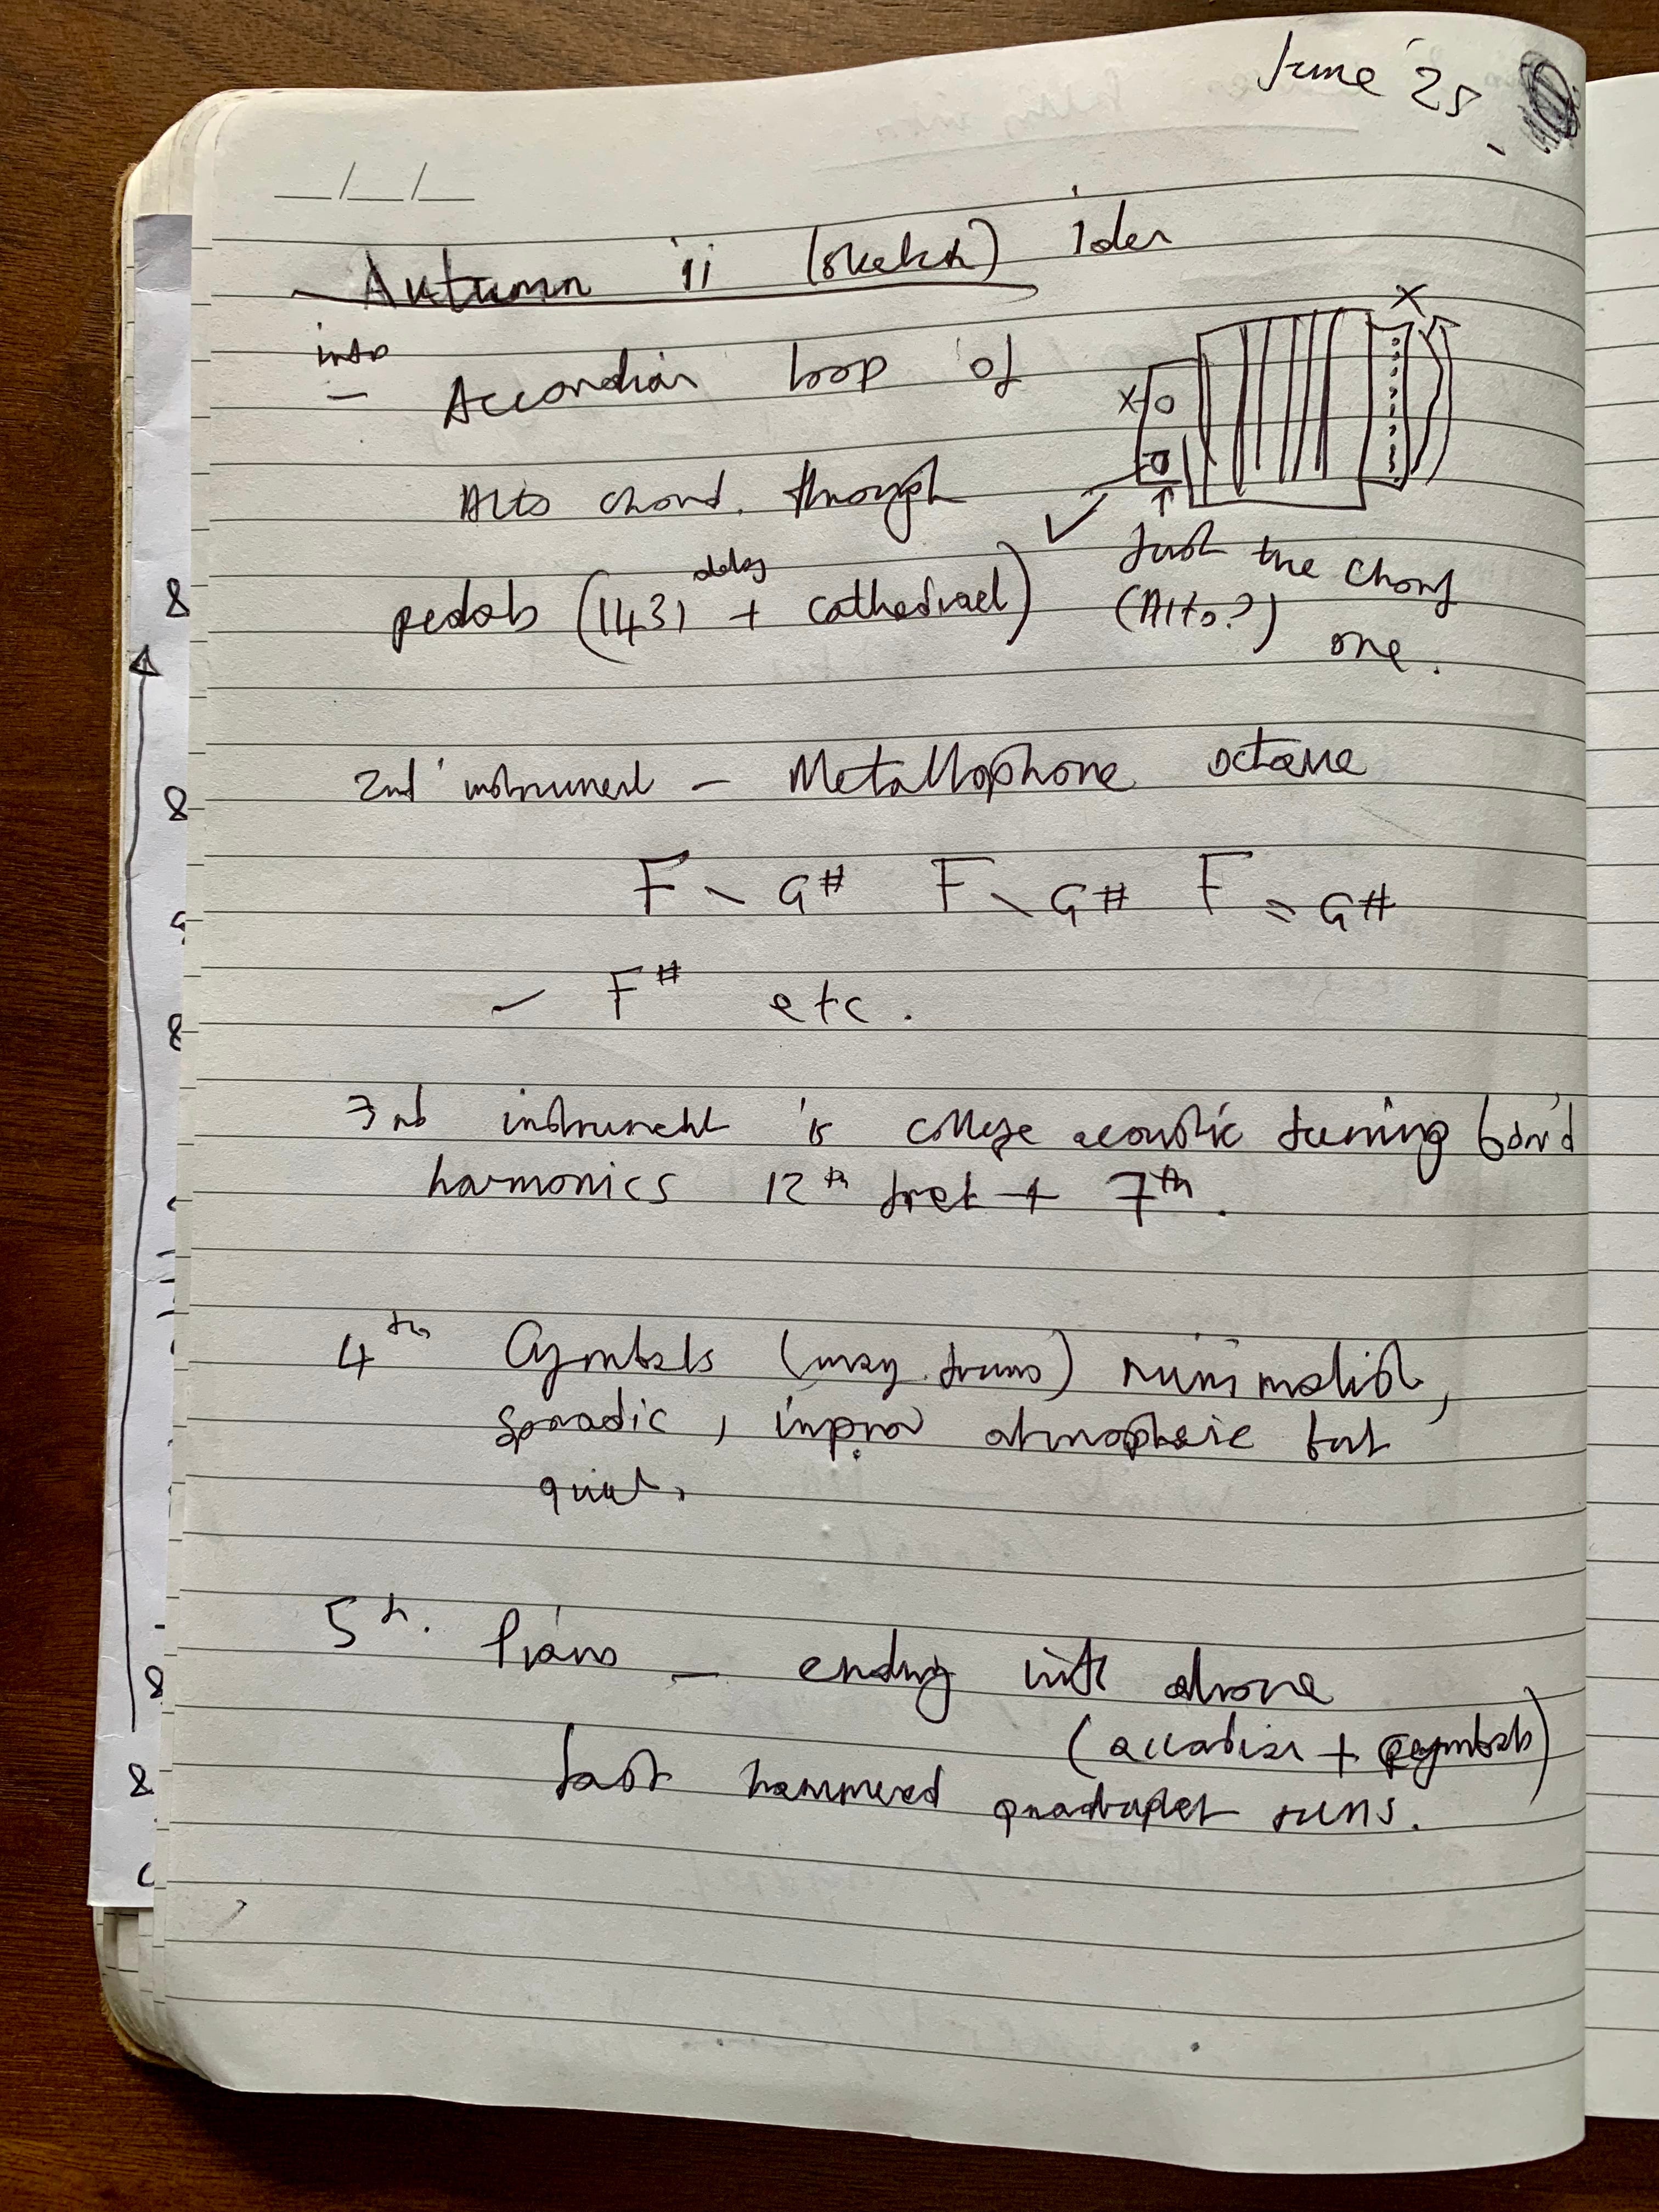 June '25
__/__/__
Autumn ii (sketch) Idea
intro
- Accordian loop of
Alto chord. through
pedals (1431 delay + cathedral)
X
X
Just the chord
(Alto?) one.
2nd instrument - Metallophone octave
F - G# F - G# F - G#
- F# etc.
3rd instrument is college acoustic tuning
harmonics 12th fret + 7th.
4th Cymbals (may drums) minimalist,
sporadic, improv atmospheric but
quiet.
5th. Piano - ending with above
(accordian + cymbals)
fast hammered quadruplet runs.
8
8
8
8
8